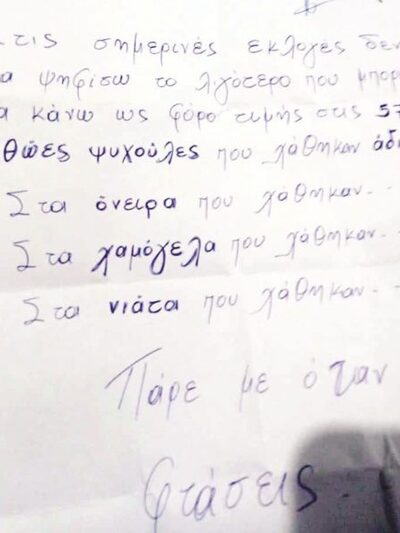 τις σημερινές εκλογες δεν
α ψηφίσω το λιγότερο που μπορ
α κάνω ως φόρο τιμής στις 57
θώες ψυχούλες που χάθηκαν άδι
Στα όνειρα που χάθηκαν..
Στα χαμόγελα που χάθηκαν..
Στα νιάτα που χάθηκαν..
Πάρε με όταν
φτάσεις..